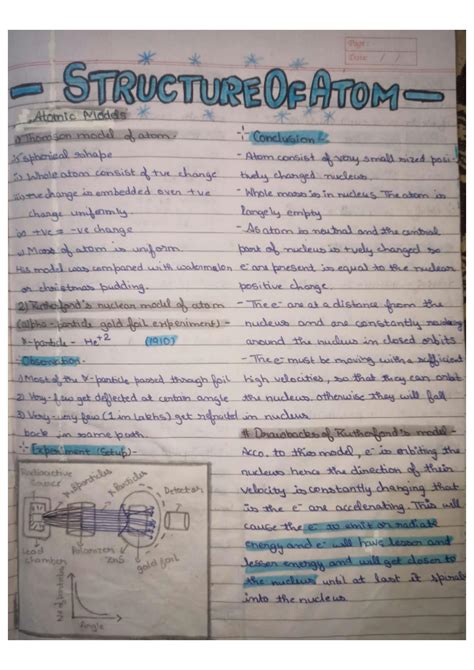 Page :
Date: / /
- STRUCTURE OF ATOM -
Atomic Models
1) Thomson model of atom.
i) Spherical shape
ii) Whole atom consist of +ve charge
iii) -ve charge is embedded over +ve
charge uniformly
iv) +ve = -ve charge
v) Mass of atom is uniform.
His model was compared with watermelon
or christmas pudding.
2) Rutherford's nuclear model of atom
(alpha-particle gold foil experiment) -
α-particle - He+2 (1910)
Observation-
1) Most of the α-particle passed through foil
2) Very-few get deflected at certain angle
3) Very-very few (1 in lakhs) get
back in same path.
Experiment (Setup)-
Radioactive
Source
α-particles
Detector
Lead
chamber
ZnS
gold foil
Angle
Conclusion
- Atom consist of very small sized posi-
tively charged nucleus.
- Whole mass is in nucleus. The atom is
largely empty
- As atom is neutral and the central
part of nucleus is +vely charged so
e⁻ are present is equal to the nuclear
positive charge
- The e⁻ are at a distance from the
nucleus and are constantly
around the nucleus in closed orbits
- The e⁻ must be moving with a sufficient
high velocities, so that they can orbit
the nucleus otherwise they will fall
in nucleus
# Drawbacks of Rutherford's model-
Acco. to this model, e⁻ is orbiting the
nucleus hence the direction of their
velocity is constantly changing that
is the e⁻ are accelerating. This will
cause the e⁻ to emit or radiate
energy and e⁻ will have lesser and
lesser energy and will get closer to
the nucleus until at last it spirals
into the nucleus